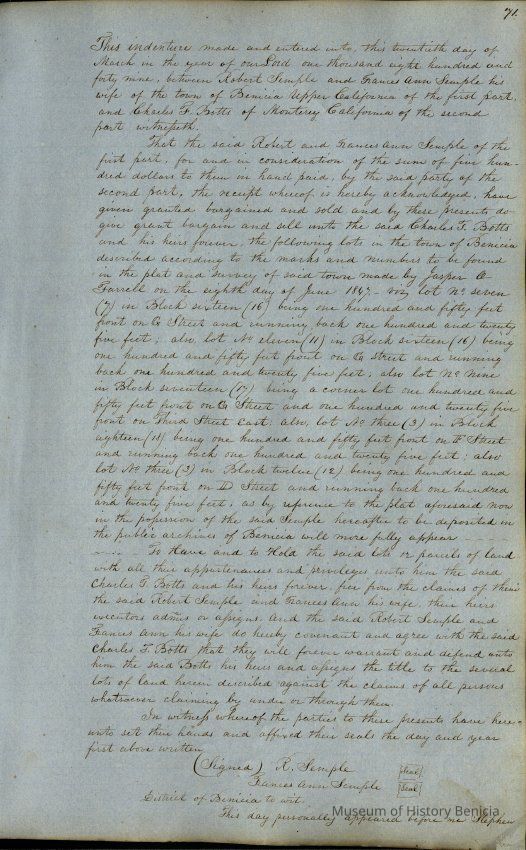 71.
This indenture made and entered into, this twentieth day of
March in the year of our Lord one thousand eight hundred and
forty nine, between Robert Semple and Frances Ann Semple his
wife of the town of Benicia Upper California of the first part,
and Charles T. Botts of Monterey California of the second
part witnesseth.
That the said Robert and Frances Ann Semple of the
first part, for and in consideration of the sum of five hun-
dred dollars to them in hand paid, by the said party of the
second part, the receipt whereof is hereby acknowledged, have
given granted bargained and sold and by these presents do
give grant bargain and sell unto the said Charles T. Botts
and his heirs forever, the following lots in the town of Benicia
described according to the marks and numbers to be found
in the plat and survey of said town made by Jasper O
Farrell on the eighth day of June 1847 - viz lot No. seven
(7) in Block sixteen (16) being one hundred and fifty feet
front on G Street and running back one hundred and twenty
five feet; also, lot No eleven (11) in Block sixteen (16) being
one hundred and fifty feet front on G street and running
back one hundred and twenty five feet; also lot No. nine
in Block seventeen (17) being a corner lot one hundred and
fifty feet front on G Street and one hundred and twenty five
front on Third Street East; also, lot No. three (3) in Block
eighteen (18) being one hundred and fifty feet front on F Street
and running back one hundred and twenty five feet; also
lot No. three (3) in Block twelve (12) being one hundred and
fifty feet front on D Street and running back one hundred
and twenty five feet, as by reference to the plat aforesaid now
in the possession of the said Semple hereafter to be deposited in
the public archives of Benicia will more fully appear
To Have and to Hold the said lots or parcels of land
with all their appurtenances and privileges unto him the said
Charles T Botts and his heirs forever, free from the claims of them
the said Robert Semple and Frances Ann his wife, their heirs
executors admrs or assigns. And the said Robert Semple and
Frances Ann his wife do hereby covenant and agree with the said
Charles T. Botts that they will forever warrant and defend unto
him the said Botts his heirs and assigns the title to the several
lots of land herein described against the claims of all persons
whatsoever claiming by under or through them.
In witness whereof the parties to these presents have here-
unto set their hands and affixed their seals the day and year
first above written
(Signed) R. Semple [Seal]
Frances Ann Semple [Seal]
District of Benicia to wit.
This day personally appeared before me Stephen
Museum of History Benicia